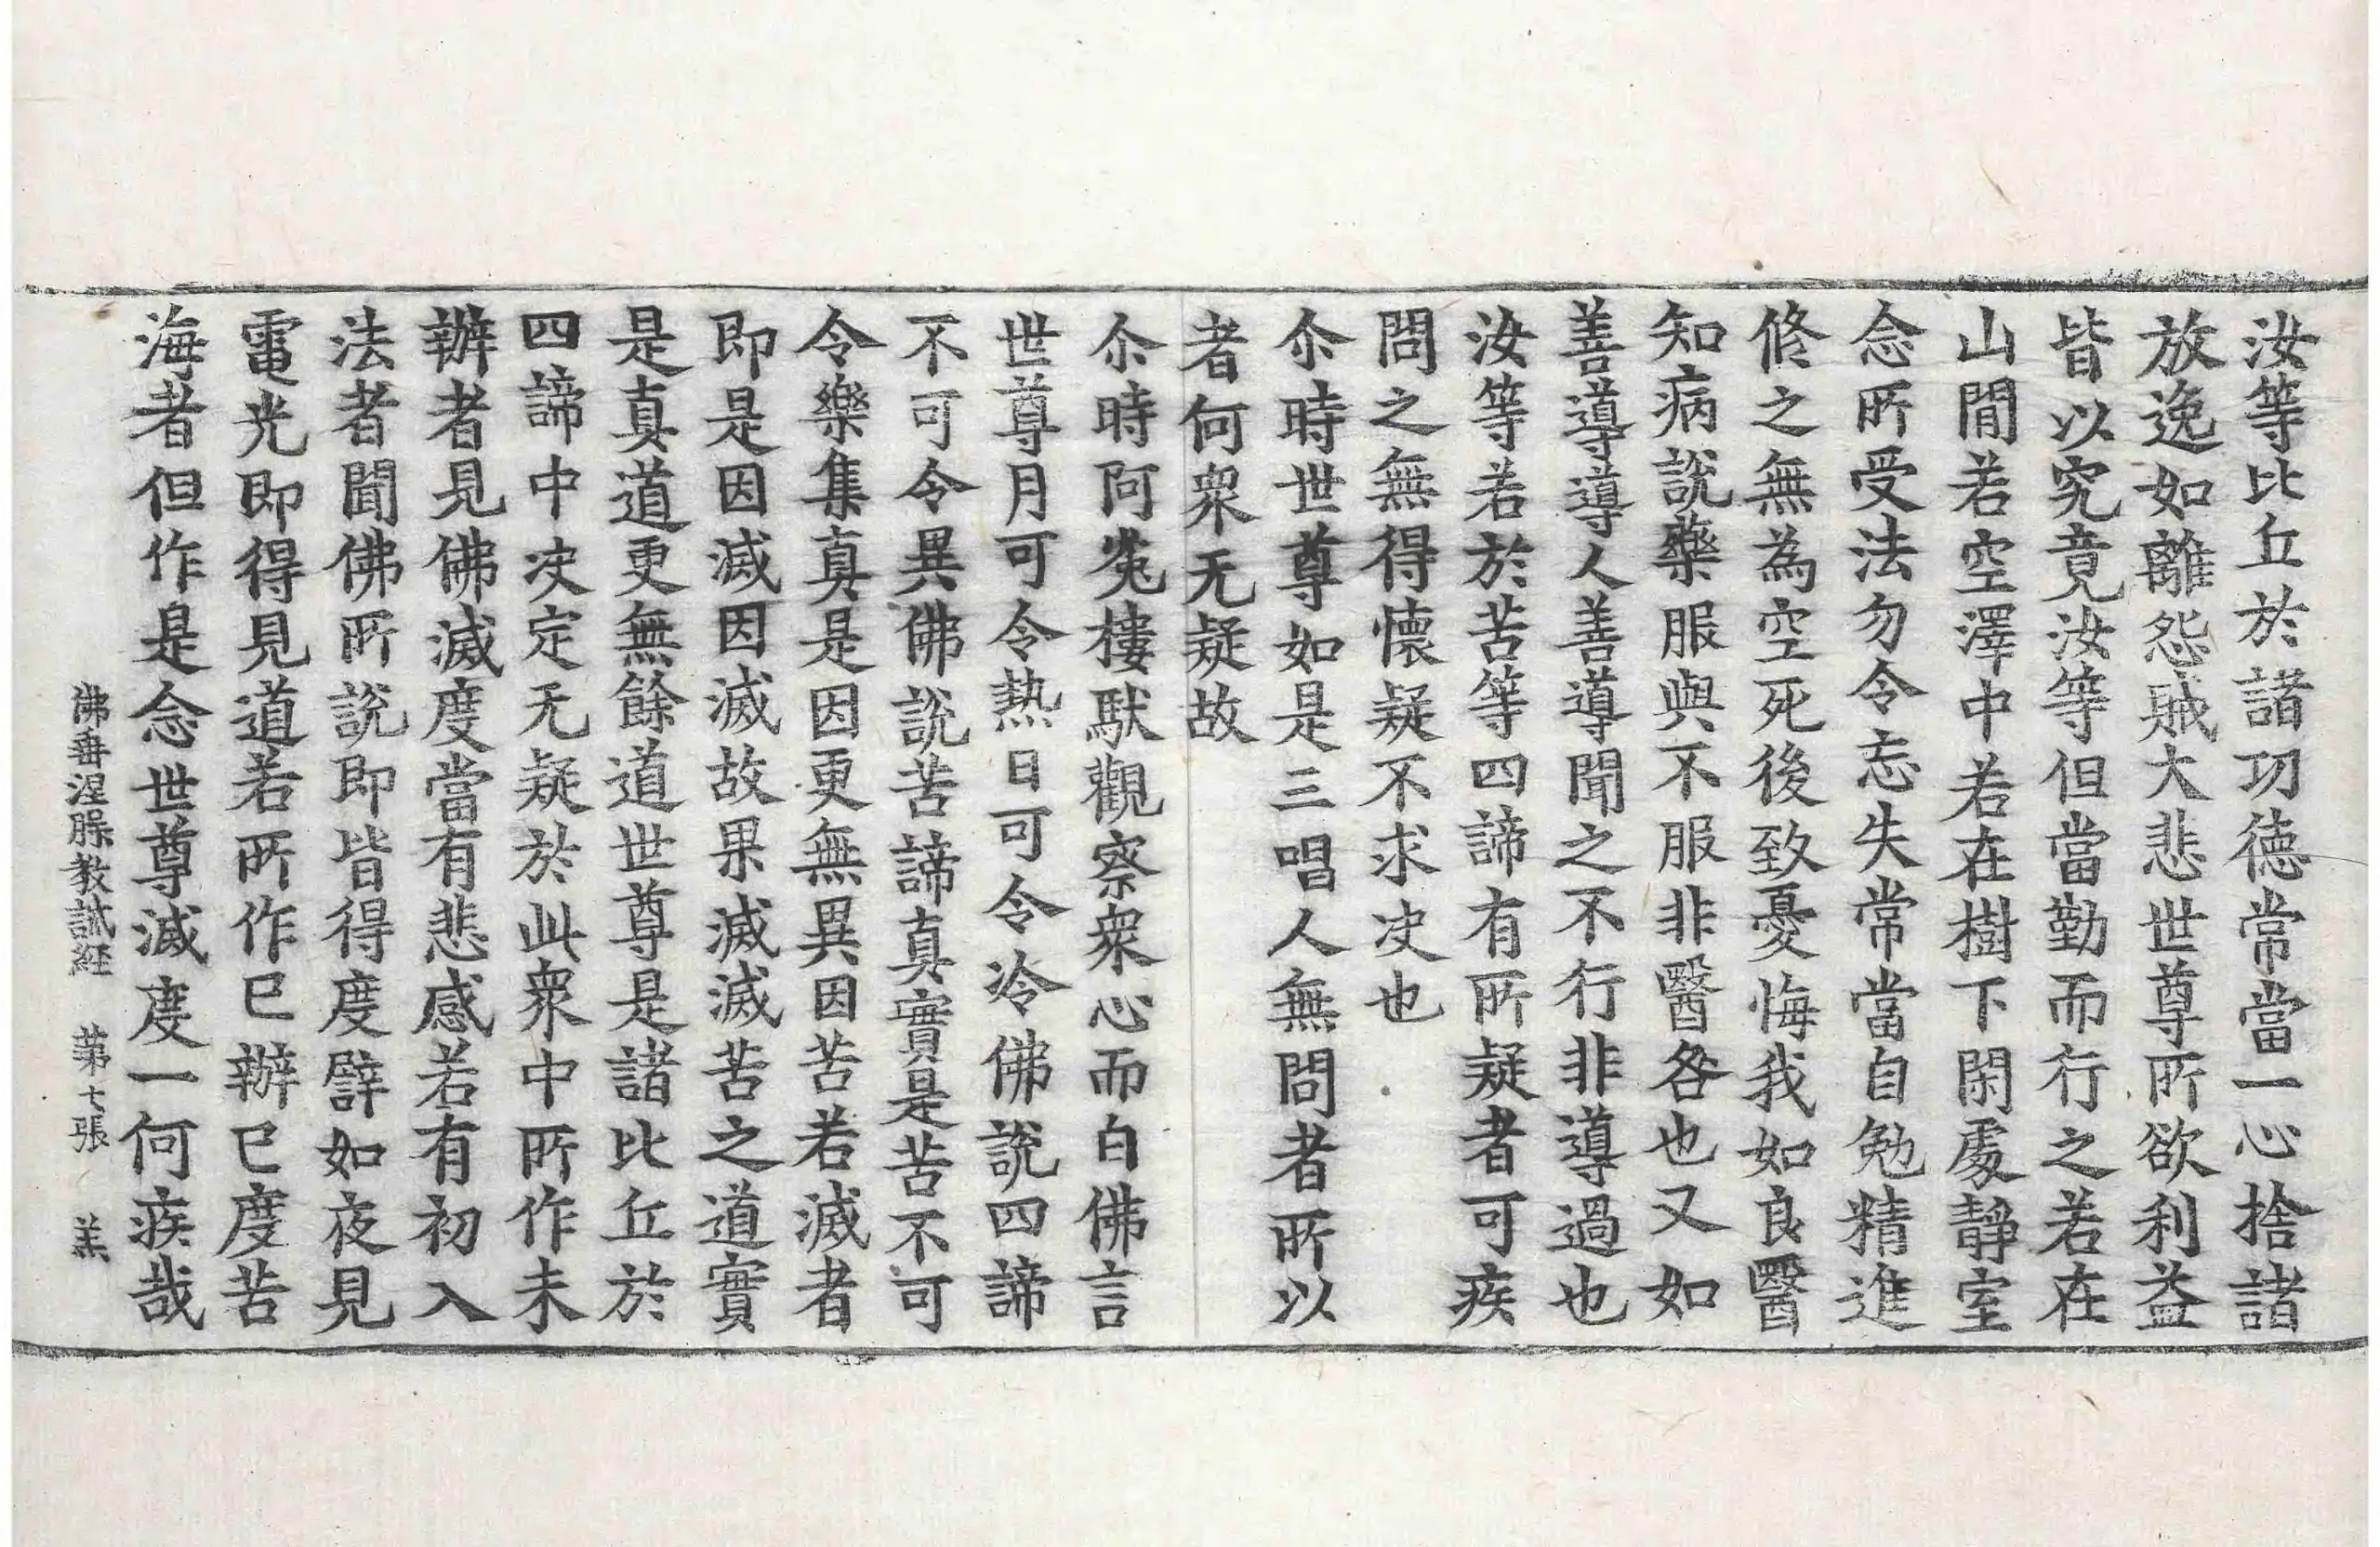 汝等比丘於諸功德常當一心捨諸
放逸如離怨賊大悲世尊所欲利益
皆以究竟汝等但當勤而行之若在
山間若空澤中若在樹下閑處靜室
念所受法勿令忘失常當自勉精進
修之無為空死後致憂悔我如良醫
知病說藥服與不服非醫咎也又如
善導導人善導聞之不行非導過也
汝等若於苦等四諦有所疑者可疾
問之無得懷疑不求决也
尒時世尊如是三唱人無問者所以
者何衆无疑故
尒時阿㝹樓馱觀察衆心而白佛言
世尊月可令熱日可令冷佛說四諦
不可令異佛說苦諦真實是苦不可
令樂集真是因更無異因苦若滅者
即是因滅因滅故果滅滅苦之道實
是真道更無餘道世尊是諸比丘於
四諦中决定无疑於此衆中所作未
辦者見佛滅度當有悲感若有初入
法者聞佛所說即皆得度譬如夜見
電光即得見道若所作已辦已度苦
海者但作是念世尊滅度一何疾哉
佛垂涅槃教誡経 苐七張 羔